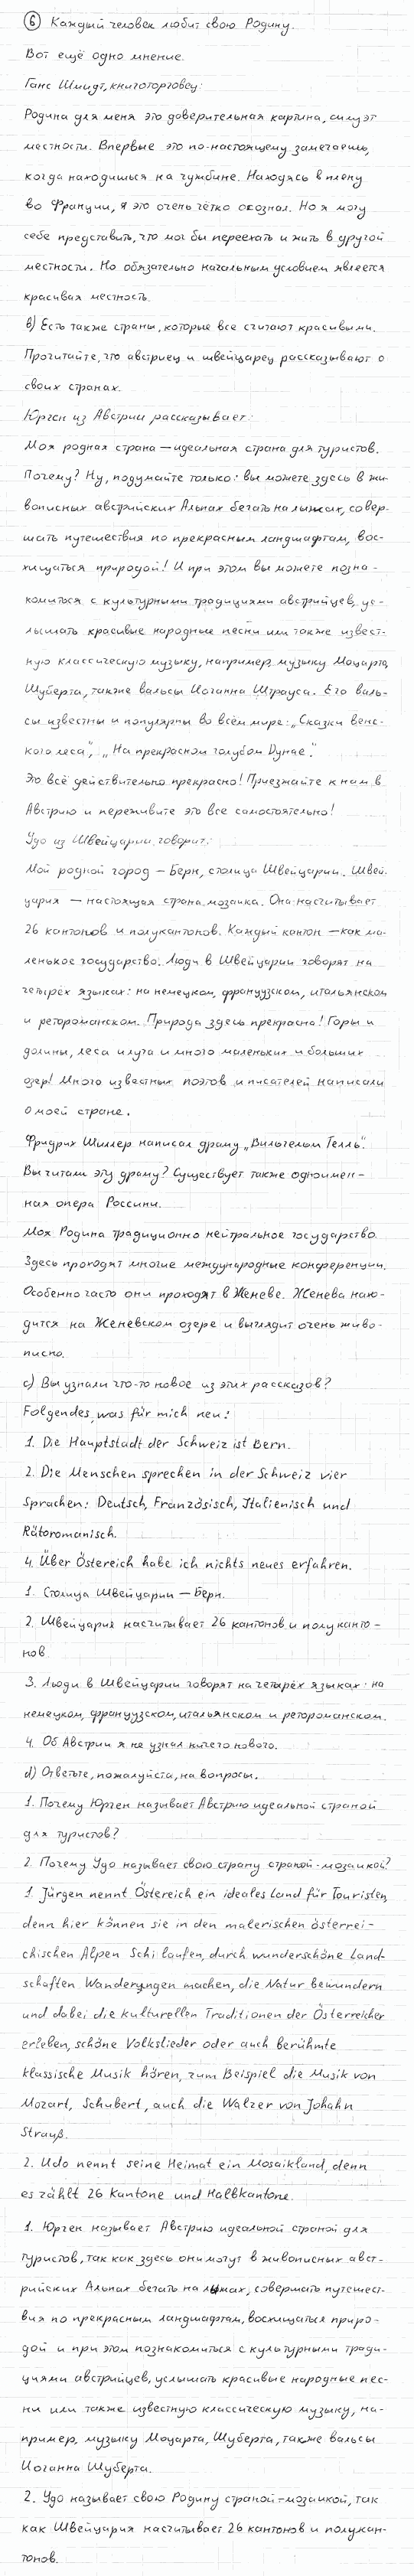 ⑥ Каждый человек любит свою Родину.
Вот ещё одно мнение.
Ганс Шмидт, книготорговец:
Родина для меня это доверительная картина, силуэт
местности. Впервые это по-настоящему замечаешь,
когда находишься на чужбине. Находясь в плену
во Франции, я это очень чётко осознал. Но я могу
себе представить, что мог бы переехать и жить в другой
местности. Но обязательно начальным условием является
красивая местность.
b) Есть также страны, которые все считают красивыми.
Прочитайте, что австриец и швейцарец рассказывают о
своих странах.
Юрген из Австрии рассказывает:
Моя родная страна — идеальная страна для туристов.
Почему? Ну, подумайте только: вы можете здесь в жи-
вописных австрийских Альпах бегать на лыжах, совер-
шать путешествия по прекрасным ландшафтам, вос-
хищаться природой! И при этом вы можете позна-
комиться с культурными традициями австрийцев, ус-
лышать красивые народные песни или также извест-
ную классическую музыку, например, музыку Моцарта,
Шуберта, также вальсы Иоганна Штрауса. Его валь-
сы известны и популярны во всём мире: „Сказки венс-
кого леса", „На прекрасном голубом Дунае".
Это всё действительно прекрасно! Приезжайте к нам в
Австрию и переживите это все самостоятельно!
Удо из Швейцарии говорит:
Мой родной город — Берн, столица Швейцарии. Швей-
цария — настоящая страна мозаика. Она насчитывает
26 кантонов и полукантонов. Каждый кантон — как ма-
ленькое государство. Люди в Швейцарии говорят на
четырёх языках: на немецком, французском, итальянском
и ретороманском. Природа здесь прекрасна! Горы и
долины, леса и луга и много маленьких и больших
озер! Много известных поэтов и писателей написали
о моей стране.
Фридрих Шиллер написал драму „Вильгельм Телль".
Вы читали эту драму? Существует также одноимен-
ная опера Россини.
Моя Родина традиционно нейтральное государство.
Здесь проходят многие международные конференции.
Особенно часто они проходят в Женеве. Женева нахо-
дится на Женевском озере и выглядит очень живо-
писно.
c) Вы узнали что-то новое из этих рассказов?
Folgendes, was für mich neu:
1. Die Hauptstadt der Schweiz ist Bern.
2. Die Menschen sprechen in der Schweiz vier
Sprachen: Deutsch, Französisch, Italienisch und
Rätoromanisch.
4. Über Östereich habe ich nichts neues erfahren.
1. Столица Швейцарии — Берн.
2. Швейцария насчитывает 26 кантонов и полуканто-
нов.
3. Люди в Швейцарии говорят на четырёх языках: на
немецком, французском, итальянском и ретороманском.
4. Об Австрии я не узнал ничего нового.
d) Ответьте, пожалуйста, на вопросы.
1. Почему Юрген называет Австрию идеальной страной
для туристов?
2. Почему Удо называет свою страну страной-мозаикой?
1. Jürgen nennt Östereich ein ideales Land für Touristen,
denn hier können sie in den malerischen österrei-
chischen Alpen Schi laufen, durch wunderschöne Land-
schaften Wanderungen machen, die Natur bewundern
und dabei die kulturellen Traditionen der Österreicher
erleben, schöne Volkslieder oder auch berühmte
klassische Musik hören, zum Beispiel die Musik von
Mozart, Schubert, auch die Walzer von Johahn
Strauß.
2. Udo nennt seine Heimat ein Mosaikland, denn
es zählt 26 Kantone und Halbkantone.
1. Юрген называет Австрию идеальной страной для
туристов, так как здесь они могут в живописных авст-
рийских Альпах бегать на лыжах, совершать путешест-
вия по прекрасным ландшафтам, восхищаться приро-
дой и при этом познакомиться с культурными тради-
циями австрийцев, услышать красивые народные пес-
ни или также известную классическую музыку, на-
пример, музыку Моцарта, Шуберта, также вальсы
Иоганна Шуберта.
2. Удо называет свою Родину страной-мозаикой, так
как Швейцария насчитывает 26 кантонов и полукан-
тонов.